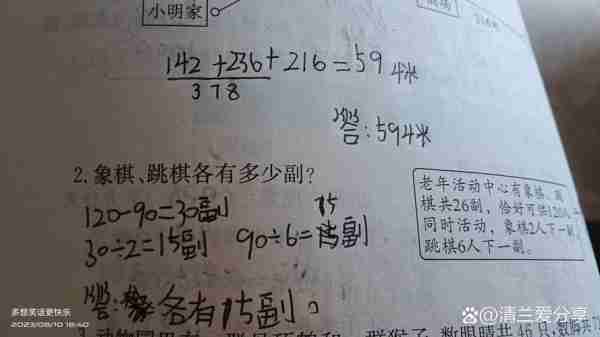 小明家
142+236+216=594米
378
答:594米
2.象棋、跳棋各有多少副?
120-90=30副
15
30÷2=15副 90÷6=15副
答: 各有15副。
老年活动中心有象棋、
棋共26副,恰好可供120人
同时活动,象棋2人下一副
跳棋6人下一副。
多想笑话更快乐
2023/09/10 16:40
清兰爱分享